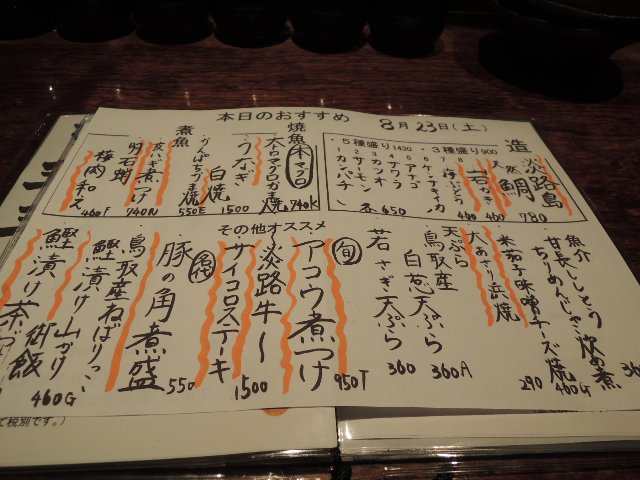 本日のおすすめ
8月23日(土)
造
淡路島
天然鯛 780
岩がき 460
海ぶどう 400
3種盛り900
5種盛り1430
1 カンパチ
2 サーモン
3 カツオ
4 サワラ
5 アナゴ
各650
焼魚
本マグロ
大トロマグロカマ焼 740K
うなぎ
白焼 1500
かんぱちカマ焼 550E
煮魚
皮ハギ煮つけ 740N
明石蛸
梅肉和え 460F
その他オススメ
魚介
甘長ししとう
ちりめんじゃこ炒め煮
米茄子味噌チーズ焼 400G
大あさり浜焼 290
天ぷら
鳥取産
白葱天ぷら 360A
若さぎ天ぷら 360
旬
アコウ煮つけ 950T
淡路牛
サイコロステーキ 1500
角煮
豚の角煮 550
鳥取産ねばりっこ
鰹漬け山かけ
鰹漬け茶づけ
御飯 460G
て税別です。)